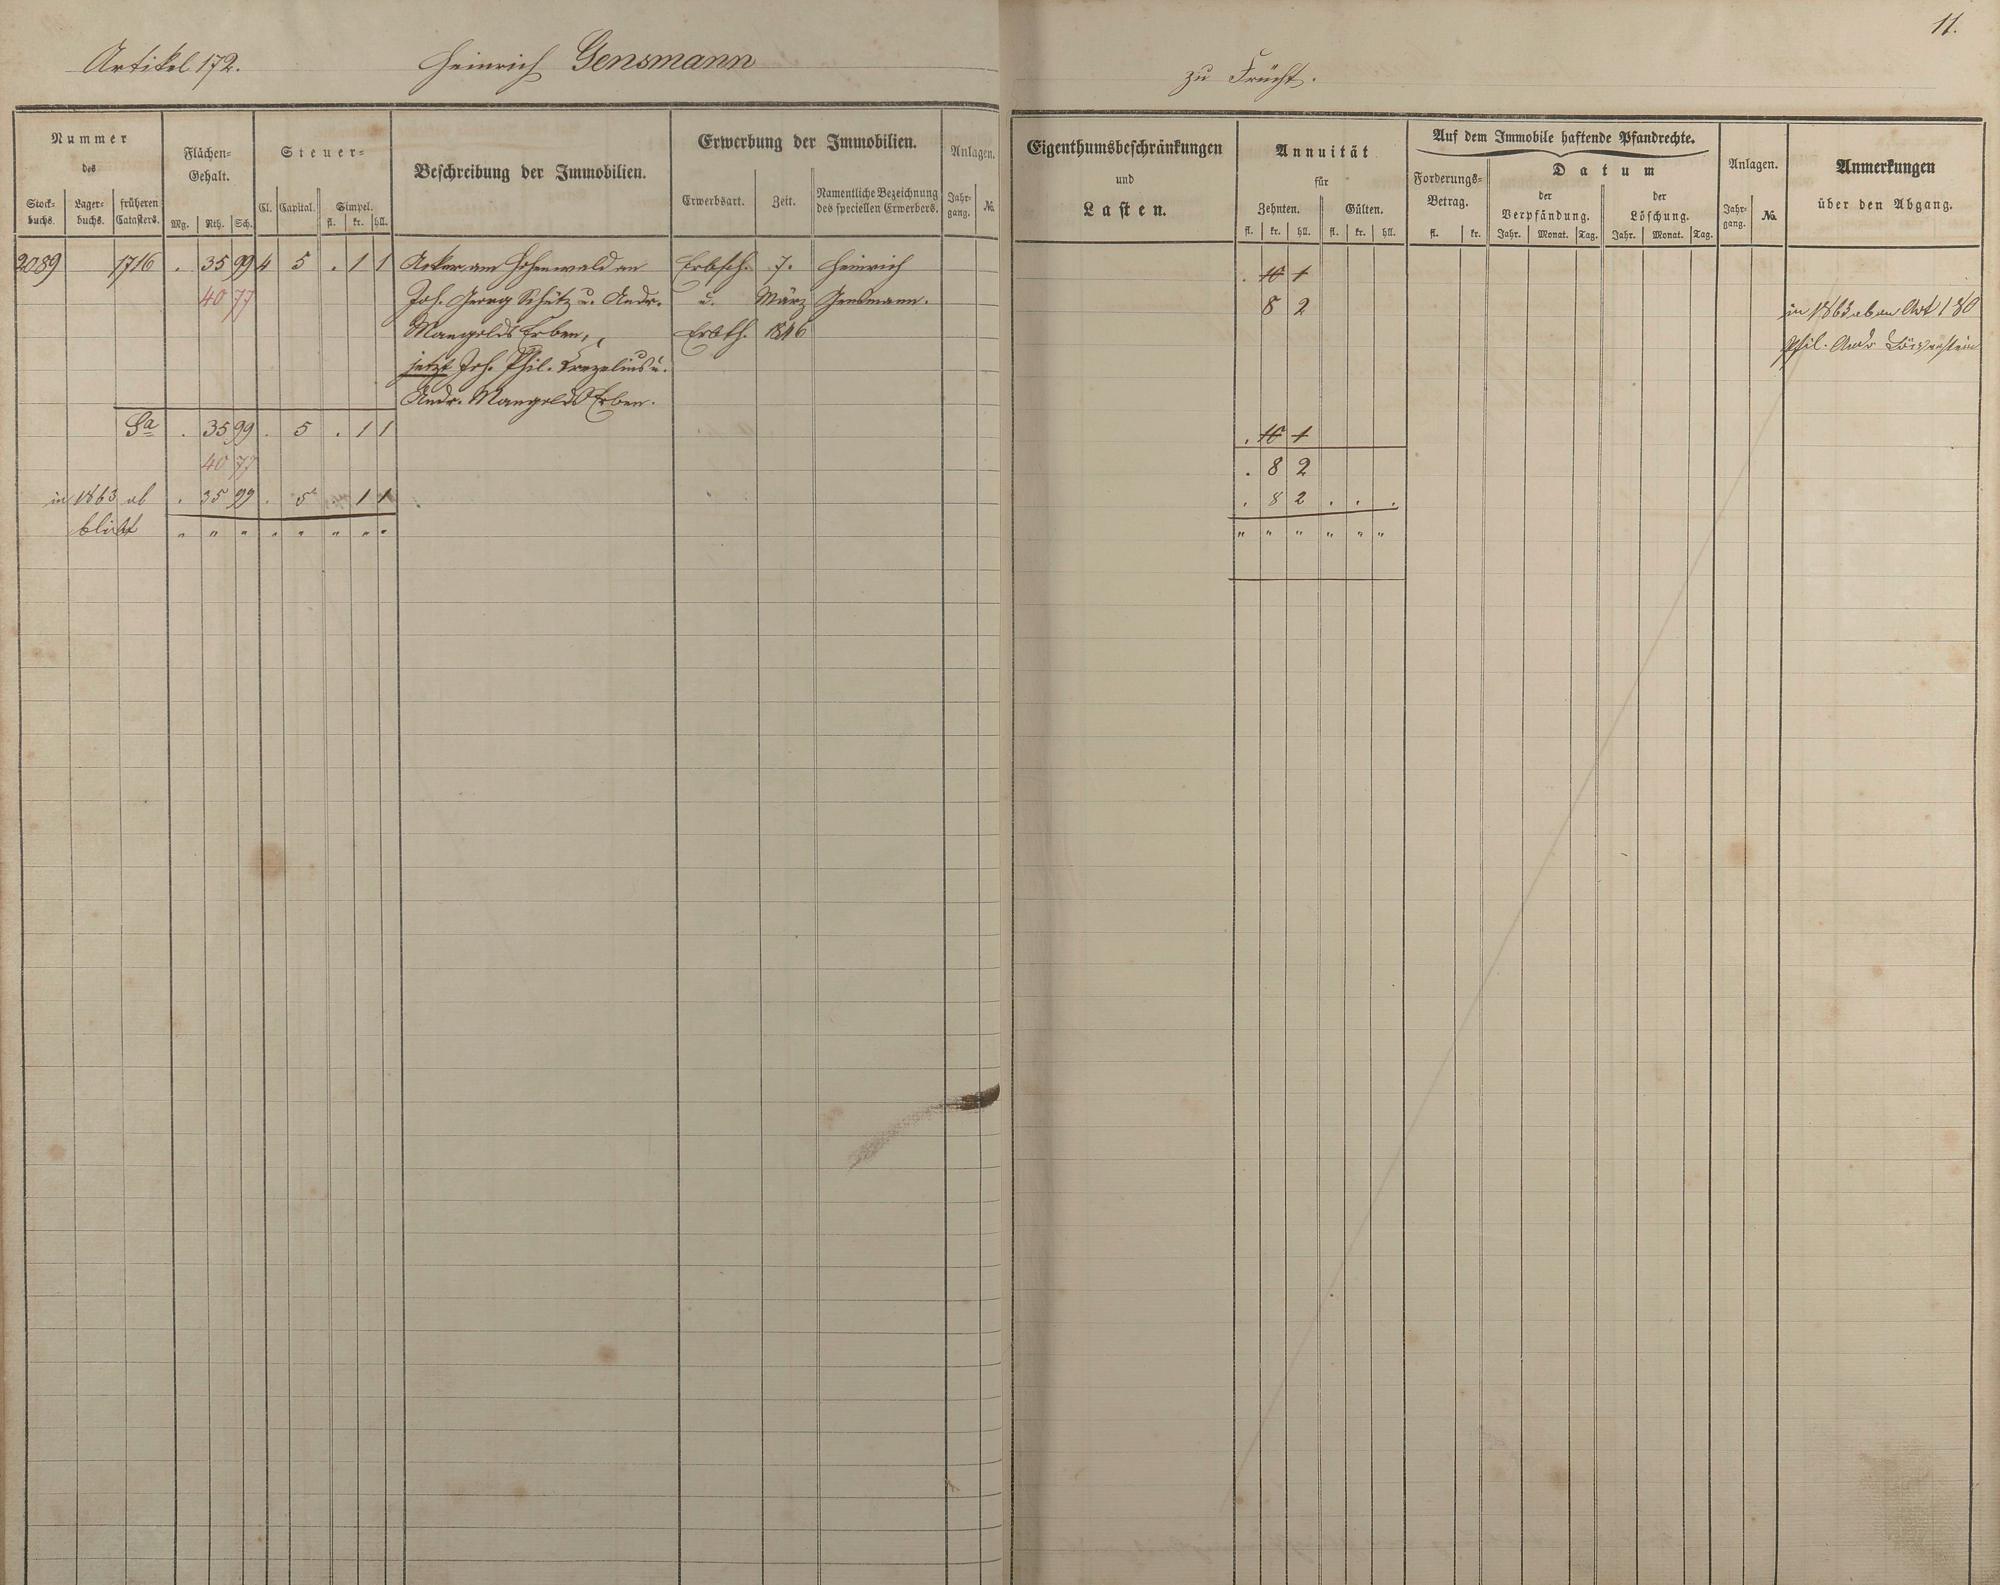 11.
Artikel 172. Heinrich Gensmann zu Frücht.
Nummer
des
Stock-
buchs.
Lager-
buchs.
früheren
Catasters.
Flächen-
Gehalt.
Mg. Rth. Sch.
Steuer-
Cl. Capital. Simpel.
fl. kr. hll.
Beschreibung der Immobilien.
Erwerbung der Immobilien.
Erwerbsart. Zeit. Namentliche Bezeichnung
des speciellen Erwerbers.
Anlagen.
Jahr-
gang.
No.
Eigenthumsbeschränkungen
und
Lasten.
Annuität
für
Zehnten. Gülten.
fl. kr. hll. fl. kr. hll.
Auf dem Immobile haftende Pfandrechte.
Forderungs-
Betrag.
fl. kr.
Datum
der
Verpfändung.
der
Löschung.
Jahr. Monat. Tag. Jahr. Monat. Tag.
Anlagen.
Jahr-
gang.
No.
Anmerkungen
über den Abgang.
2089 1716 . 35 99 4 5 . 1 1 Acker am Hohenwald an Erbsch. 7. Heinrich
40 77 Joh. Georg Schütz u. Andr. u. März Gensmann. 8 2 in 1863 ab an Art 180
Mangolds Erben, Erbth. 1846 Phil. Andr
jetzt Joh. Phil. Crezelius u.
Andr. Mangolds Erben.
Sa . 35 99 . 5 . 1 1
40 77 . 8 2
in 1863 ab . 35 99 . 5 . 1 1 . 8 2 . . .
bleibt " " " " " " " " " " " " " "